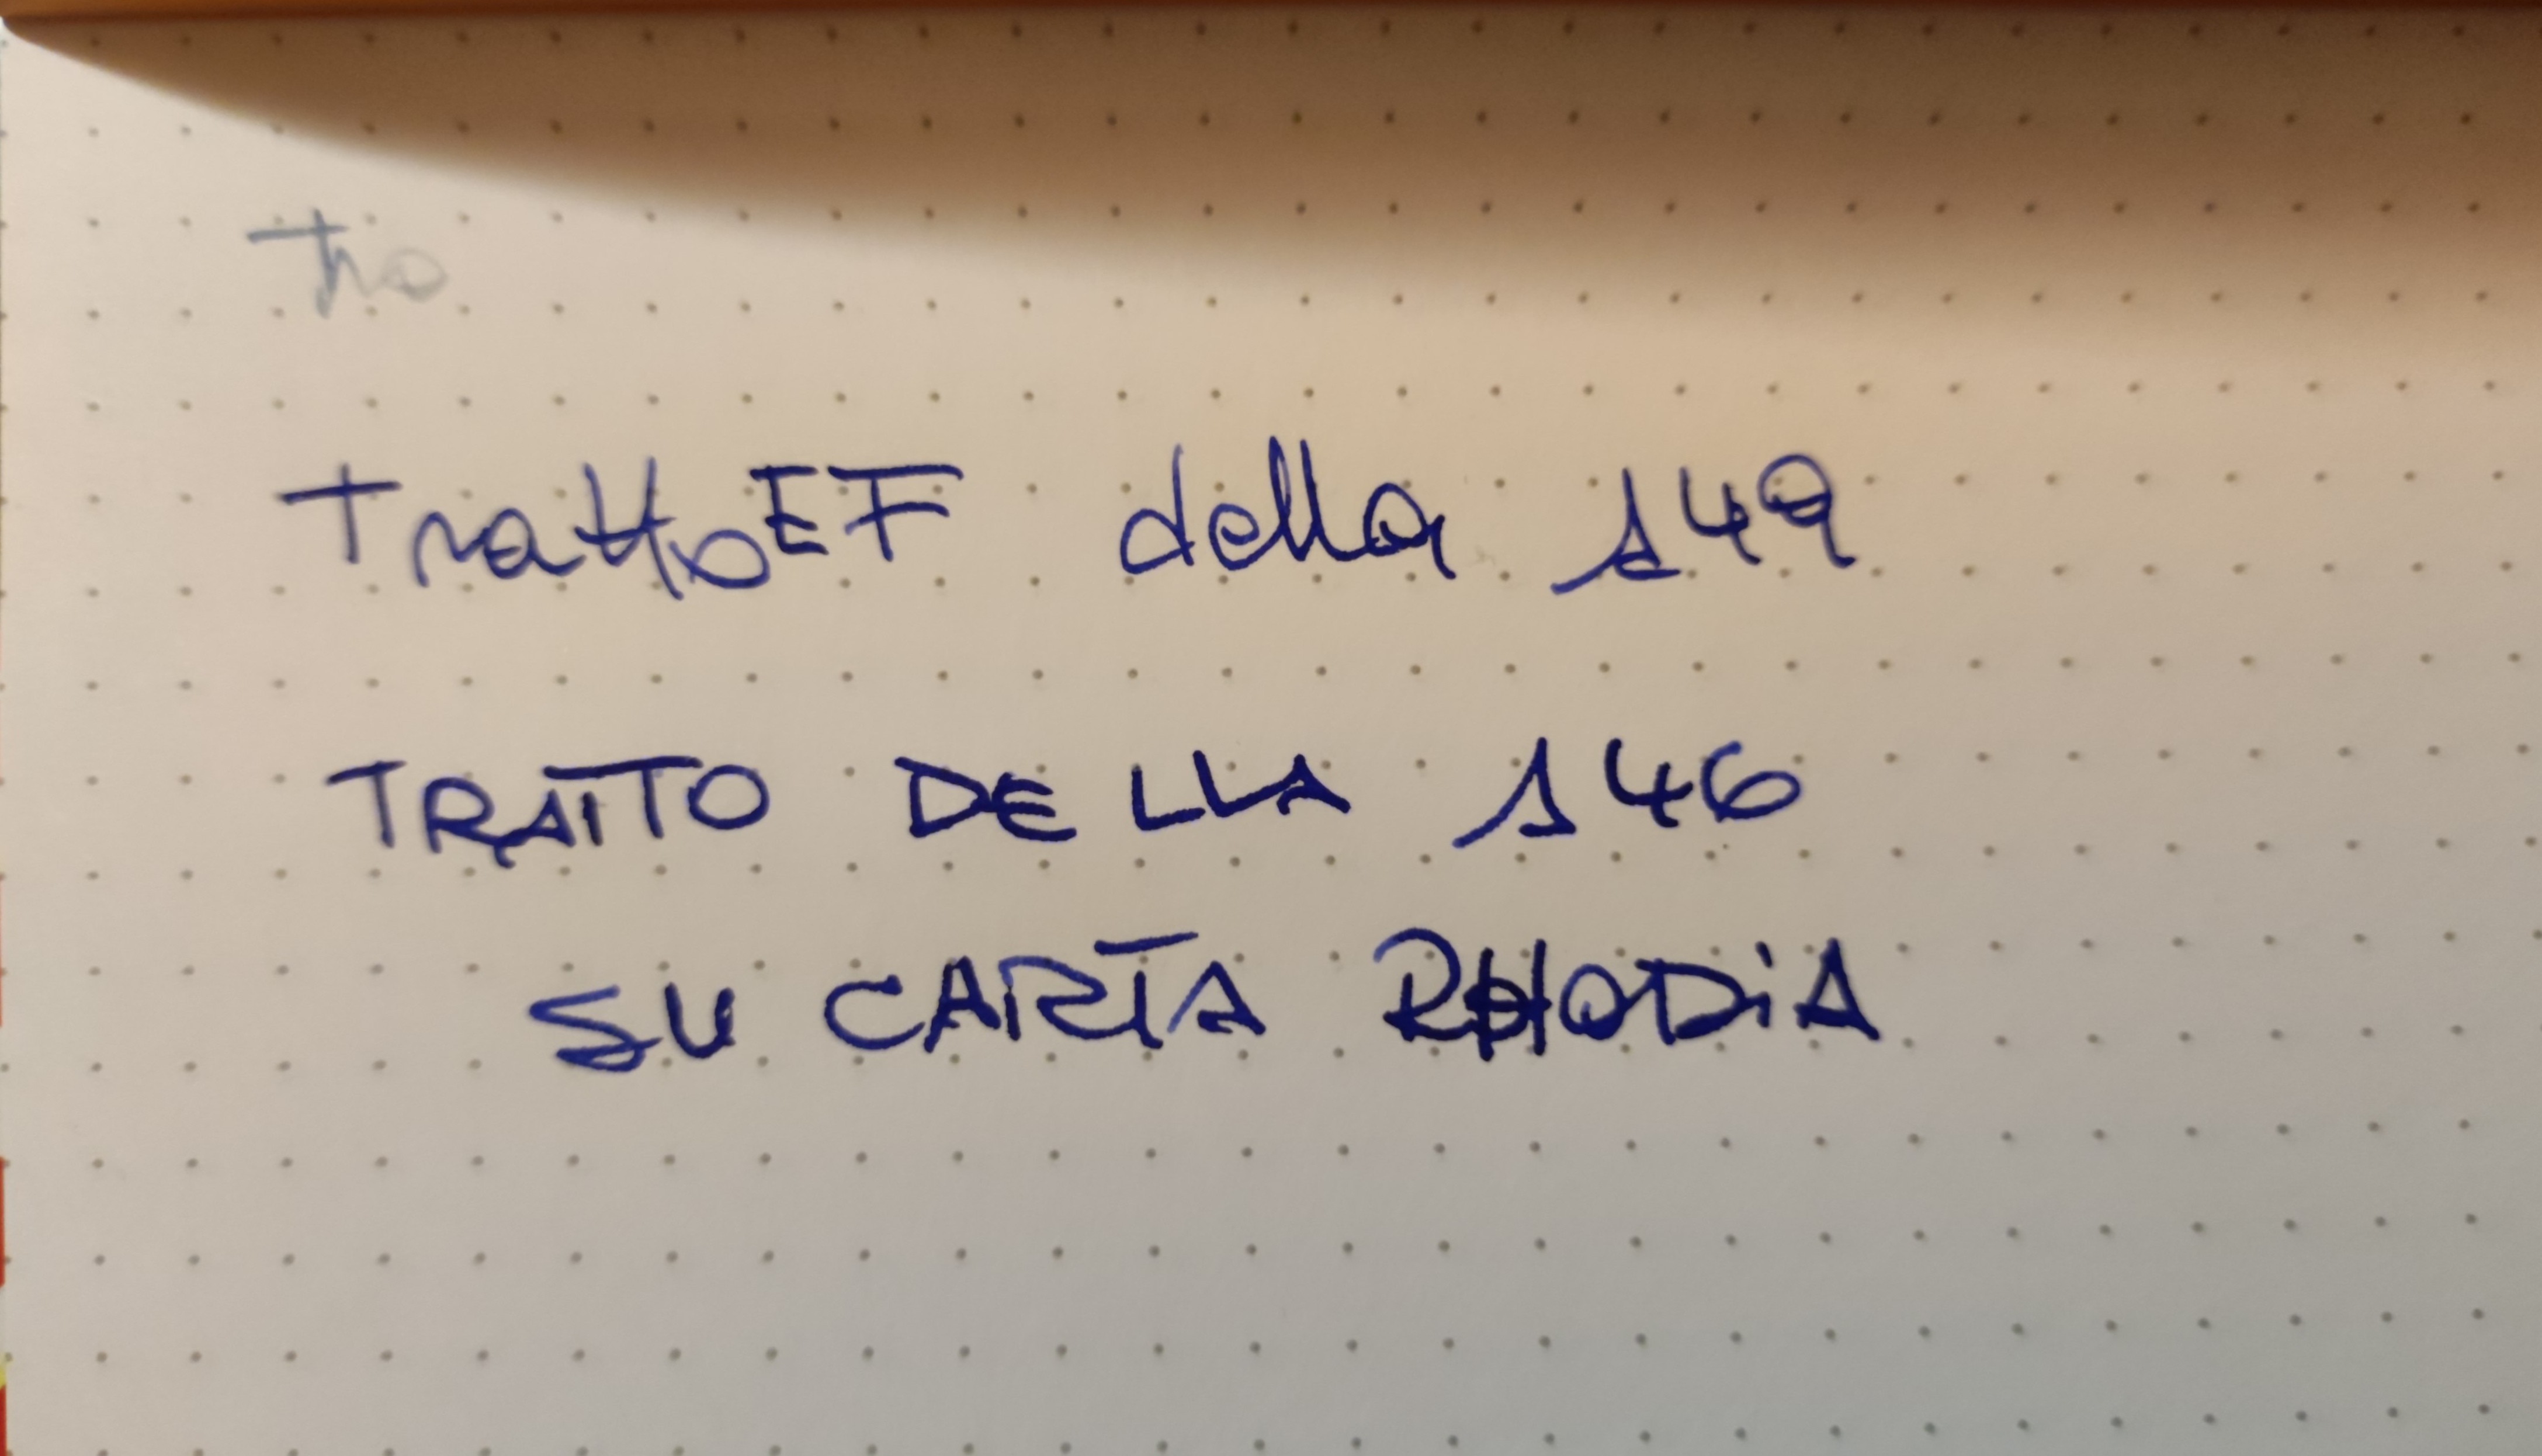 Tra
Tratto EF della 149
TRATTO DELLA 146
SU CARTA RHODiA